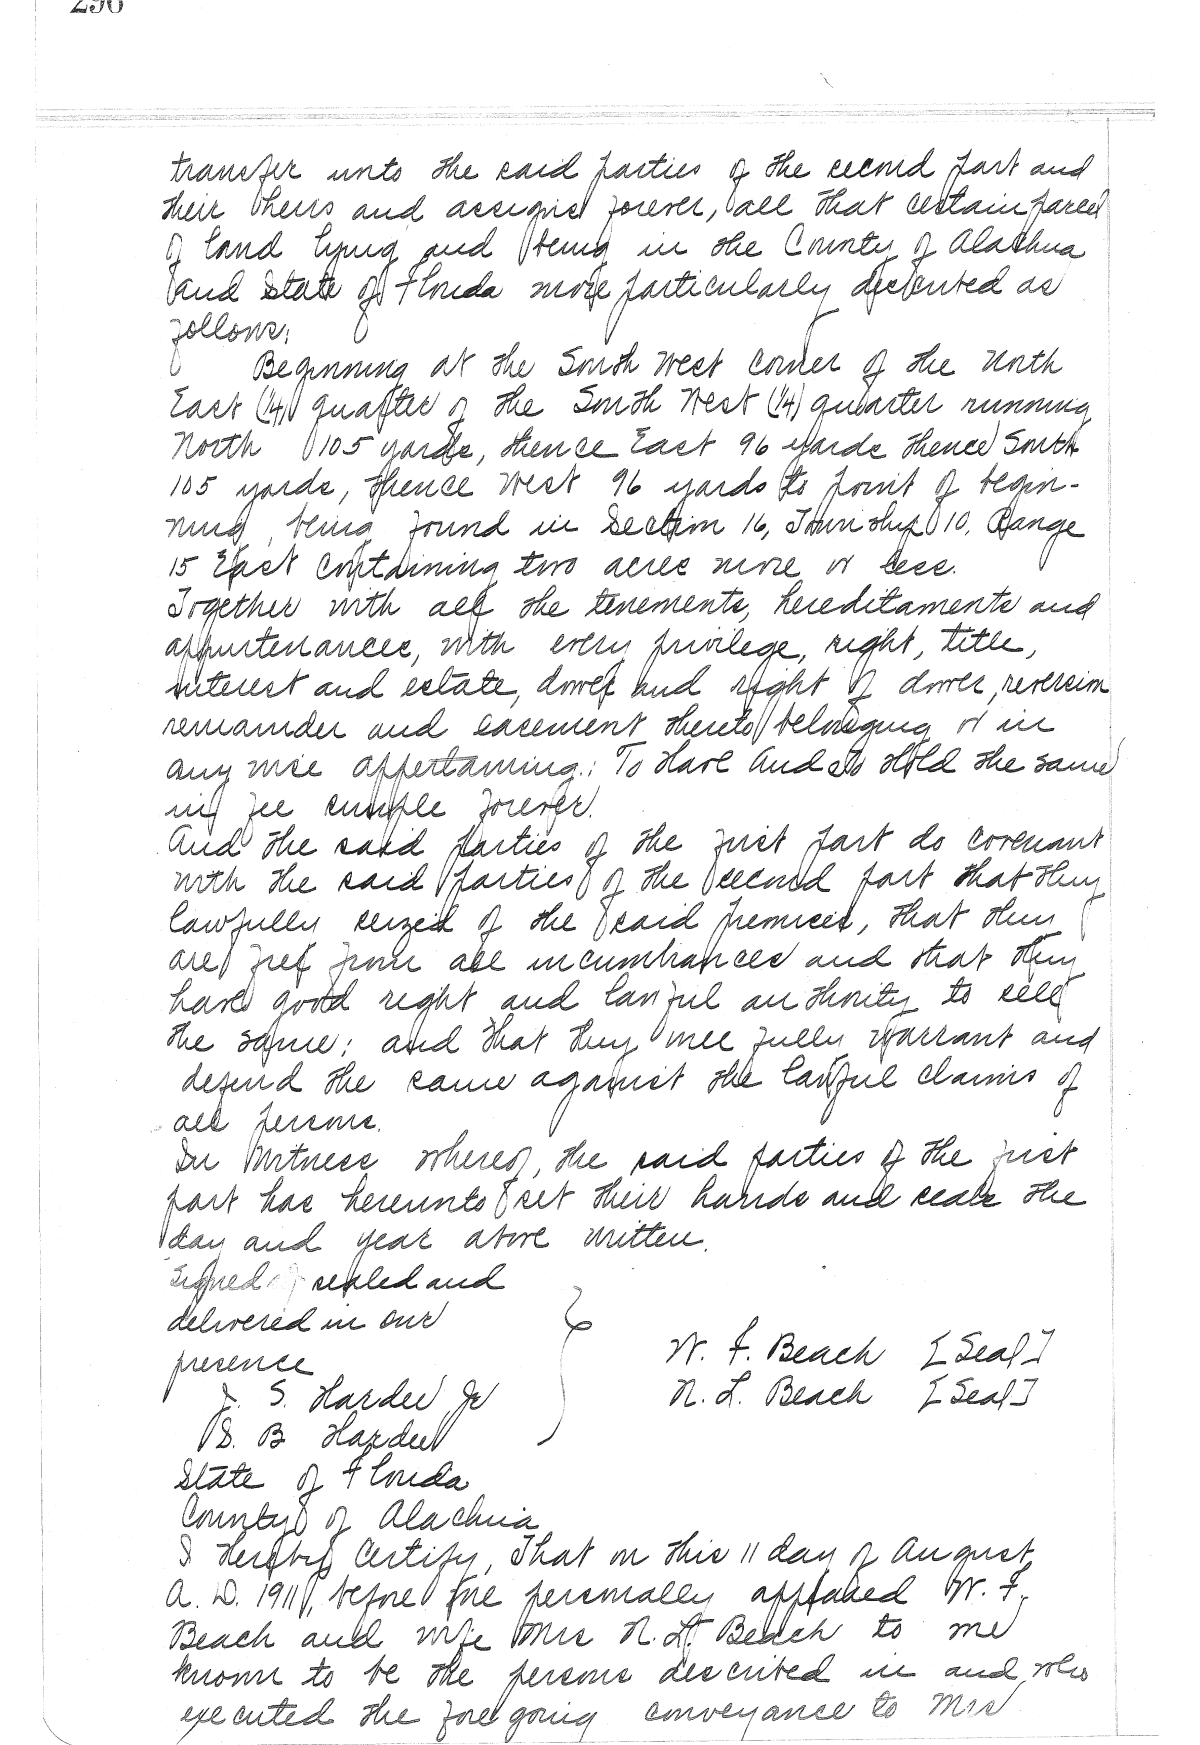 296
transfer unto the said parties of the second part and
their heirs and assigns forever, all that certain parcel
of land lying and being in the County of Alachua
and State of Florida more particularly described as
follows:
Beginning at the South West Corner of the North
East (¼) quarter of the South West (¼) quarter running
North 105 yards, thence East 96 yards thence South
105 yards, thence West 96 yards to point of begin-
ning, being found in Section 16, Township 10, Range
15 East Containing two acres more or less.
Together with all the tenements, hereditaments and
appurtenances, with every privilege, right, title,
interest and estate, dower and right of dower, reversion
remainder and easement thereto belonging or in
any wise appertaining: To Have And to Hold the same
in fee simple forever.
And the said parties of the first part do covenant
with the said parties of the second part that they
lawfully seized of the said premises, that they
are free from all incumbrances and that they
have good right and lawful authority to sell
the same; and that they will fully warrant and
defend the same against the lawful claims of
all persons.
In Witness whereof, the said parties of the first
part has hereunto set their hands and seals the
day and year above written.
Signed sealed and
delivered in our
presence
W. F. Beach [Seal]
N. L. Beach [Seal]
J. S. Hardee Jr
S. B Hardee
State of Florida
County of Alachua
I Hereby Certify, That on this 11 day of August
A. D. 1911, before me personally appeared W. F.
Beach and wife Mrs N. L. Beach to me
known to be the persons described in and who
executed the foregoing conveyance to Mrs